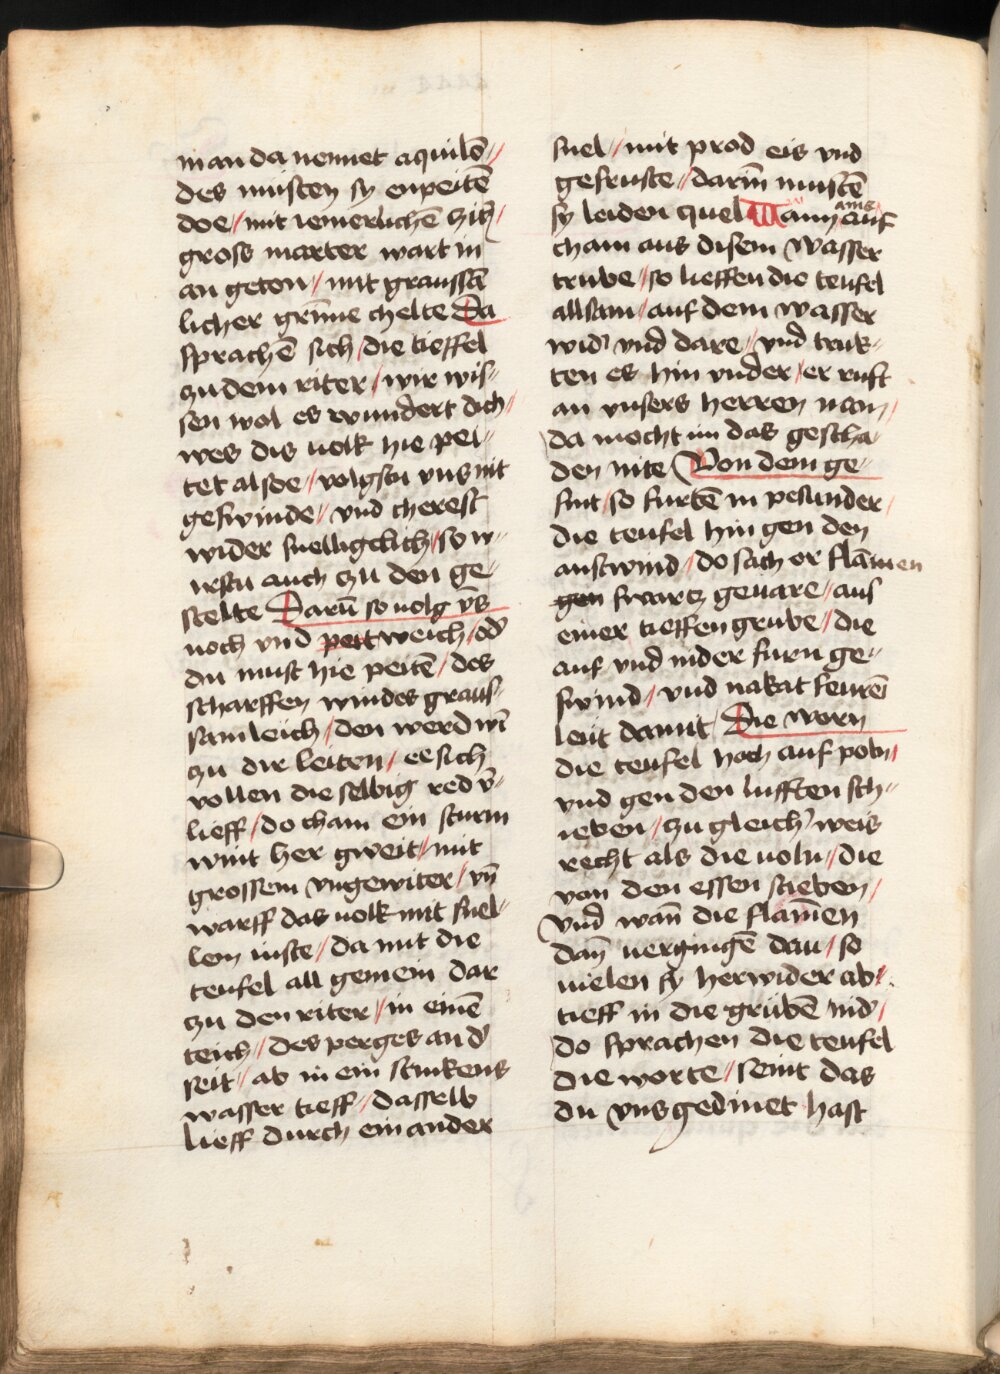 man da nennet aquilō //
des müsten sy enpeitē
doe / mit iemerlichē sitē /
gross marter wart in
an geton / mit graussā
licher grimme chelte Da
sprachē sich / die tieffel
zu dem riter / wir wis-
sen wol es wundert dich /
wes dis uolk hie pei-
tet alsoe / volgstu vns nit
geswinde / vnd cherest
wider snelligclich / so w-
irstu auch zu den ge
stelte Darū so uolg vns
noch vnd pert weich / od'
du must hie peitē / des
scharffen windes graus-
samleich / den werd wī
zu dir leiten / ee sich
vollen die selbig red v̄-
lieff / do cham ein sturm
wint her gweit / mit
grossem vngewiter / vn̄
warff das uolk mit snel-
lem iuste / da mit die
teufel all gemein dar
zu den riter / in einē
teich / des perges and'
seit / ab in ein stinkens
wasser tieff / dasselb
lieff durch ein ander
snel / mit prod eis vnd
gefruste / darin̄ mustē
sy leiden quel Wann ains auf
cham aus disem wasser
trube / so lieffen die teufel
allsam / auf dem wasser
wid' vnd dare / vnd truk-
ten es hin vnder / er ruft
an vnsers herren nam /
da mocht im das gescha
den nite Von dem ge-
sint / so furtē in pesunder /
die teufel hin gen den
austwind / do sach er flāmen
gen swartz geuare / aus
einer tieffen grube / die
auf vnd nider furn ge-
swind / vnd nakat feurē
leüt damit / Die worn
die teufel hoch auf pobn /
vnd gen den lufften sch-
ieben / zu gleich' weis
recht als die uolu / die
von den essen stieben /
Vnd wan̄ die flāmen
dan̄ uergingē dau / so
uielen sy herwider ab /
tieff in die grübē nid' /
do sprachen die teufel
die worte / seint das
du vns gedinet hast